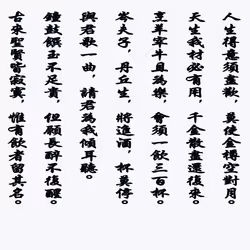 人生得意須盡歡，莫使金樽空對月。
天生我材必有用，千金散盡還復來。
烹羊宰牛且為樂，會須一飲三百杯。
岑夫子，丹丘生，將進酒，杯莫停。
與君歌一曲，請君為我傾耳聽。
鐘鼓饌玉不足貴，但願長醉不復醒。
古來聖賢皆寂寞，惟有飲者留其名。